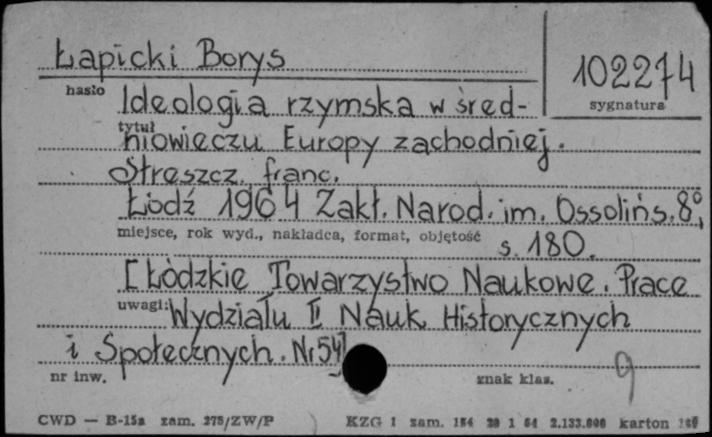 Łapicki Borys
102274
hasło
sygnatura
Ideologia rzymska w śred-
tytuł
niowieczu Europy zachodniej.
Streszcz. franc.
Łódź 1964 Zakł. Narod. im. Ossolińs. 8°,
miejsce, rok wyd., nakładca, format, objętość
s. 180.
[Łódzkie Towarzystwo Naukowe. Prace
uwagi:
Wydziału II Nauk Historycznych
i Społecznych. Nr 54]
nr inw.
znak klas.
9
CWD — B-15a zam. 275/ZW/P
KZG 1 zam. 154 28 1 64 2.133.000 karton